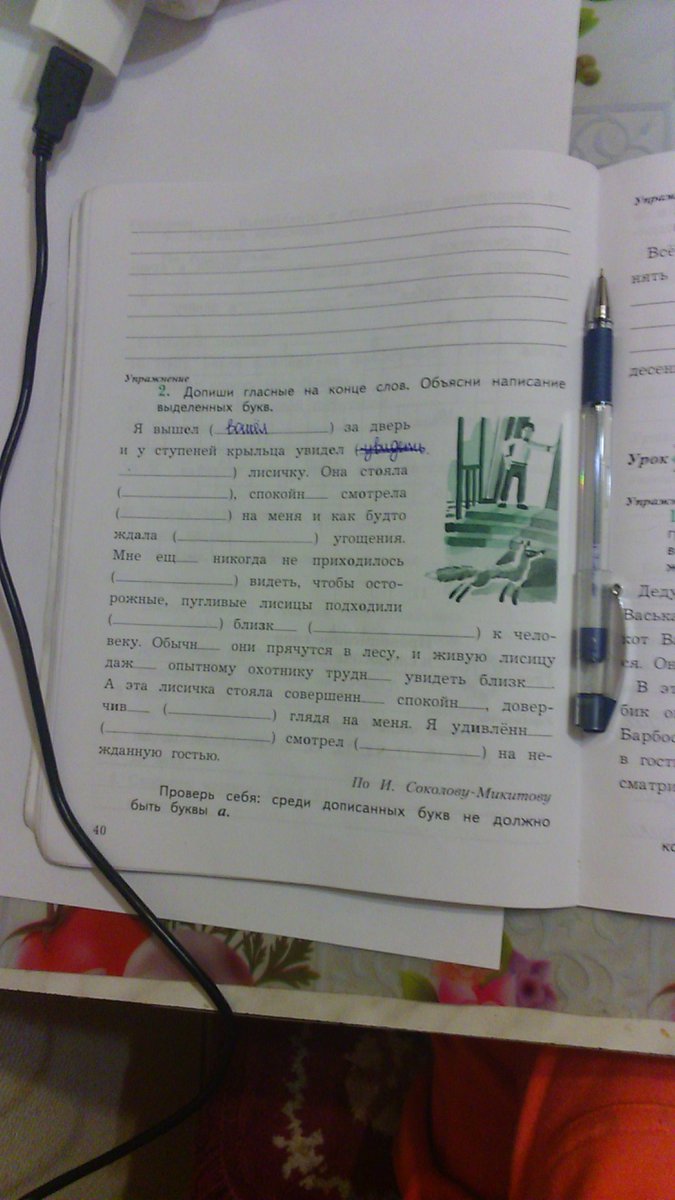 Упражнение
2. Допиши гласные на конце слов. Объясни написание
выделенных букв.
Я вышел (вошёл) за дверь
и у ступеней крыльца увидел (увидеть
) лисичку. Она стояла
(), спокойн__ смотрела
() на меня и как будто
ждала () угощения.
Мне ещ__ никогда не приходилось
() видеть, чтобы осто-
рожные, пугливые лисицы подходили
() близк__ () к чело-
веку. Обычн__ они прячутся в лесу, и живую лисицу
даж__ опытному охотнику трудн__ увидеть близк__.
А эта лисичка стояла совершенн__ спокойн__, довер-
чив__ () глядя на меня. Я удивлённ__
() смотрел () на не-
жданную гостью.
По И. Соколову-Микитову
Проверь себя: среди дописанных букв не должно
быть буквы а.
40
Упраж
Всё
нять
десен
Урок
Упражн
Деду
Васька
кот Ва
ся. Он
В эт
бик о
Барбос
в гост
сматри
ко